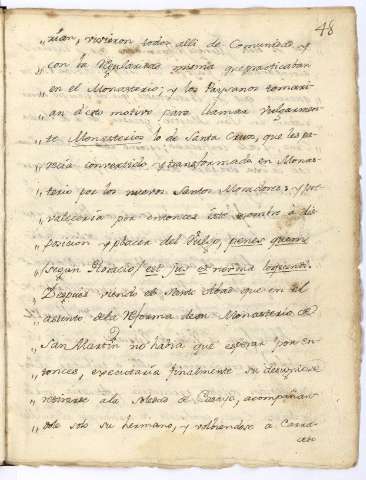 48
„ rian, vivieron todos alli de Comunidad, y
„ con la Regularidad misma que practicaban
„ en el Monasterio; y los Paysanos tomari-
„ an de este motivo para llamar vulgarmen-
„ te Monasterio a lo de Santa Cruz, que les pa-
„ recia convertido, y transformado en Monas-
„ terio por los nuevos Santos Moradores: y pre-
„ valeceria por entonces este nombre à dis-
„ posicion, y placer del Vulgo, penes quem
„ (segun Horacio) est jus et norma loquendi.
„ Despues viendo el Santo Abad que en el
„ assunto de la Reforma de su Monasterio de
„ San Martin no habia que esperar por en-
„ tonces, executaria finalmente su
„ retirarse a la Iglesia de acompañan-
„ dole solo su hermano, y volviendose a Carra-
cedo